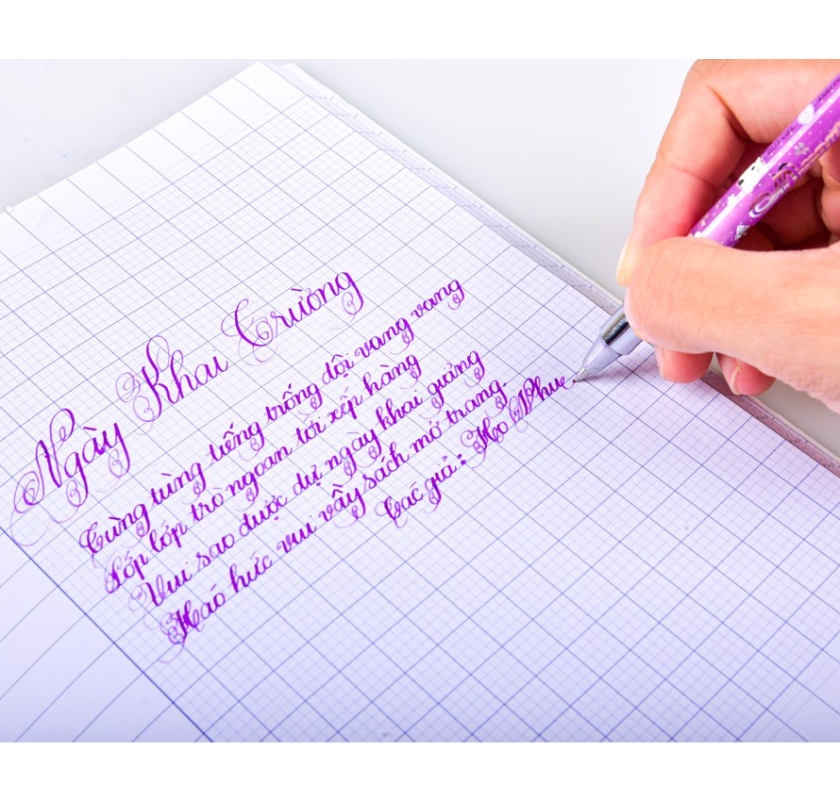 Ngày Khai Trường
Tùng tùng tiếng trống dội vang vang
Lớp lớp trò ngoan tới xếp hàng
Vui sao được dự ngày khai giảng
Háo hức vui vầy sách mở trang.
Tác giả: Họ Phuc